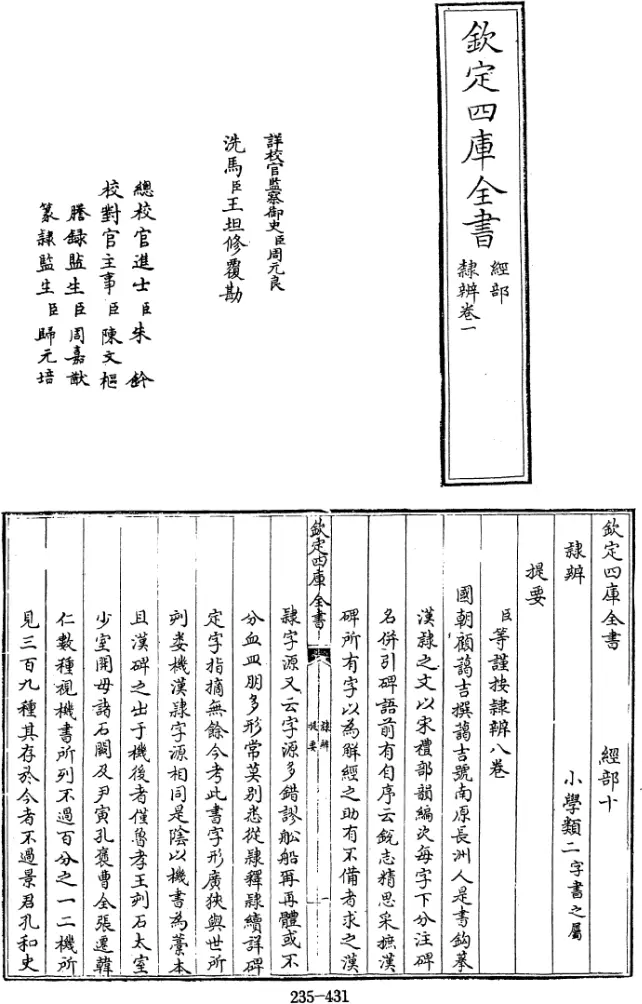 欽定四庫全書
經部
隸辨卷一
詳校官監察御史臣周元良
洗馬臣王坦修覆勘
總校官進士臣朱鈐
校對官主事臣陳文樞
謄録監生臣周嘉猷
篆隸監生臣歸元培
欽定四庫全書 經部十
隸辨 小學類二字書之屬
提要
臣等謹按隸辨八卷
國朝顧藹吉撰藹吉號南原長洲人是書鈎摹
漢隸之文以宋禮部韻編次每字下分注碑
名併引碑語前有自序云銳志精思采摭漢
碑所有字以為解經之助有不備者求之漢
欽定四庫全書
隸辨
提要
一
隸字源又云字源多錯謬舩船再再體或不
分血皿朋多形常莫别悉從隸釋隸續詳碑
定字指摘無餘今考此書字形廣狹與世所
刻婁機漢隸字源相同是陰以機書為藁本
且漢碑之出于機後者僅魯孝王刻石太室
少室開母諸石闕及尹宙孔褒曹全張遷韓
仁數種視機書所列不過百分之一二機所
見三百九種其存於今者不過景君孔和史
235-431